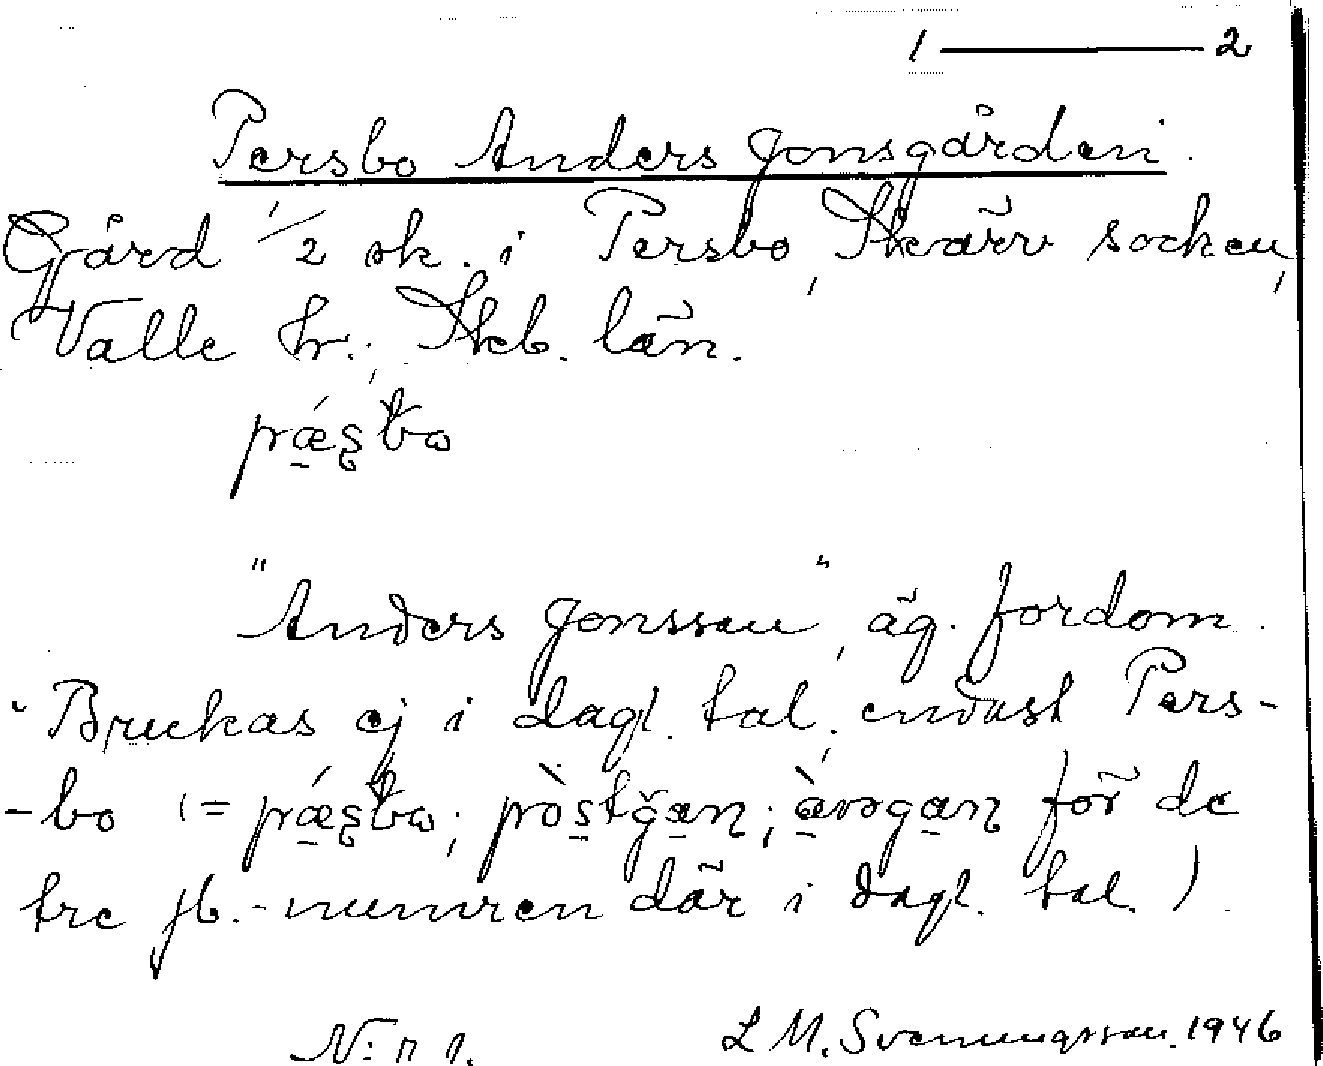 1 — 2
Persbo Anders Jonsgården.
Gård 1/2 sk. i Persbo, Skärv socken,
Valle hr.; Skb. län.
"Anders Jonsson", äg. fordom.
Brukas ej i dagl. tal; endast Pers-
-bo (= för de
tre jb.-numren där i dagl. tal.)
N:r 1. L M. Svenungsson. 1946